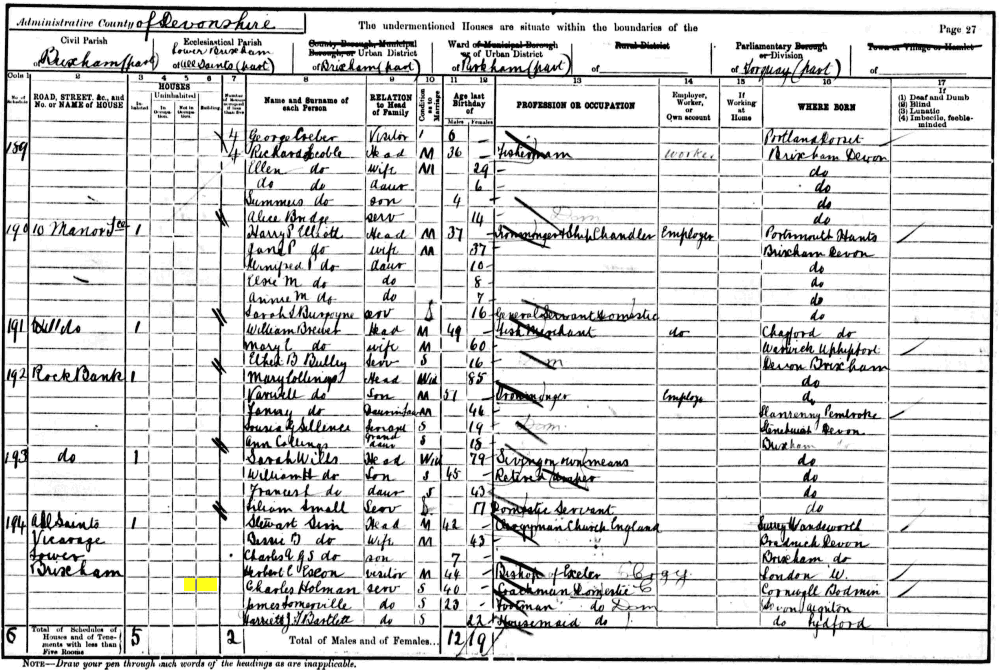 Administrative County of Devonshire
The undermentioned Houses are situate within the boundaries of the
Page 27
Civil Parish of Brixham (part)
Ecclesiastical Parish of Lower Brixham All Saints (part)
County Borough, Municipal Borough, or Urban District of Brixham (part)
Ward of Municipal Borough or of Urban District of Purkham (part)
Rural District of
Parliamentary Borough or Division of Torquay (part)
Town or Village or Hamlet of
Cols 1 2 3 4 5 6 7 8 9 10 11 12 13 14 15 16 17
No. of Schedule
ROAD, STREET, &c., and No. or NAME of HOUSE
HOUSES
Inhabited
Uninhabited
In Occupation
Not in Occupation
Building
Name and Surname of each Person
RELATION to Head of Family
Condition as to Marriage
Age last Birthday of
Males Females
PROFESSION OR OCCUPATION
Employer, Worker, or Own account
If Working at Home
WHERE BORN
If
(1) Deaf and Dumb
(2) Blind
(3) Lunatic
(4) Imbecile, feeble-minded
4 George Visitor 6 Portland Dorset
189 4 Richard Head M 36 Fisherman worker Brixham Devon
Ellen do wife M 29 do
do do daur 6 do
Summers do son 4 do
Alice Bridge serv 14 do
190 10 Manor Tce 1 Harry Elliott Head M 37 Ironmonger & Ship Chandler Employer Portsmouth Hants
Jane P do wife M 37 Brixham Devon
Winifred P do daur 10 do
Elsie M do do 8 do
Annie M do do 7 do
Sarah Burgoyne serv S 16 General Servant Domestic do
191 do 1 William Brewet Head M 49 Fish Merchant do Chagford do
Mary E do wife M 60 Warwick
Ethel B Bulley Serv S 16 Devon Brixham
192 Rock Bank 1 Mary Collings Head Wid 85 do
Varwell do Son M 51 Ironmonger Employer do
Fanny do Daur in law M 46 Pembroke
Louisa G Sellence Servant S 19 Devon
Ann Collings Grand daur S 18 Brixham
193 do 1 Sarah Wills Head Wid 79 Living on own means do
William H do Son S 45 Retired Draper do
Frances L do daur S 43 do
Lilian Small Serv S 17 Domestic Servant do
194 All Saints 1 Stewart Sim Head M 42 Clergyman Church England Surrey Wandsworth
Vicarage Bessie B do Wife M 43 Bradnich Devon
Lower Charles A G S do son 7 Brixham do
Brixham Herbert E visitor M 44 Bishop of Exeter Clergy London W.
Charles Holman serv S 40 Coachman Domestic Cornwall Bodmin
James Somerville do S 23 Footman do Dom Devon
Harriett J F Bartlett do S 22 Housemaid do do Lydford
6 Total of Schedules of Houses and of Tenements with less than Five Rooms 5 2 Total of Males and of Females... 12 19
NOTE—Draw your pen through such words of the headings as are inapplicable.